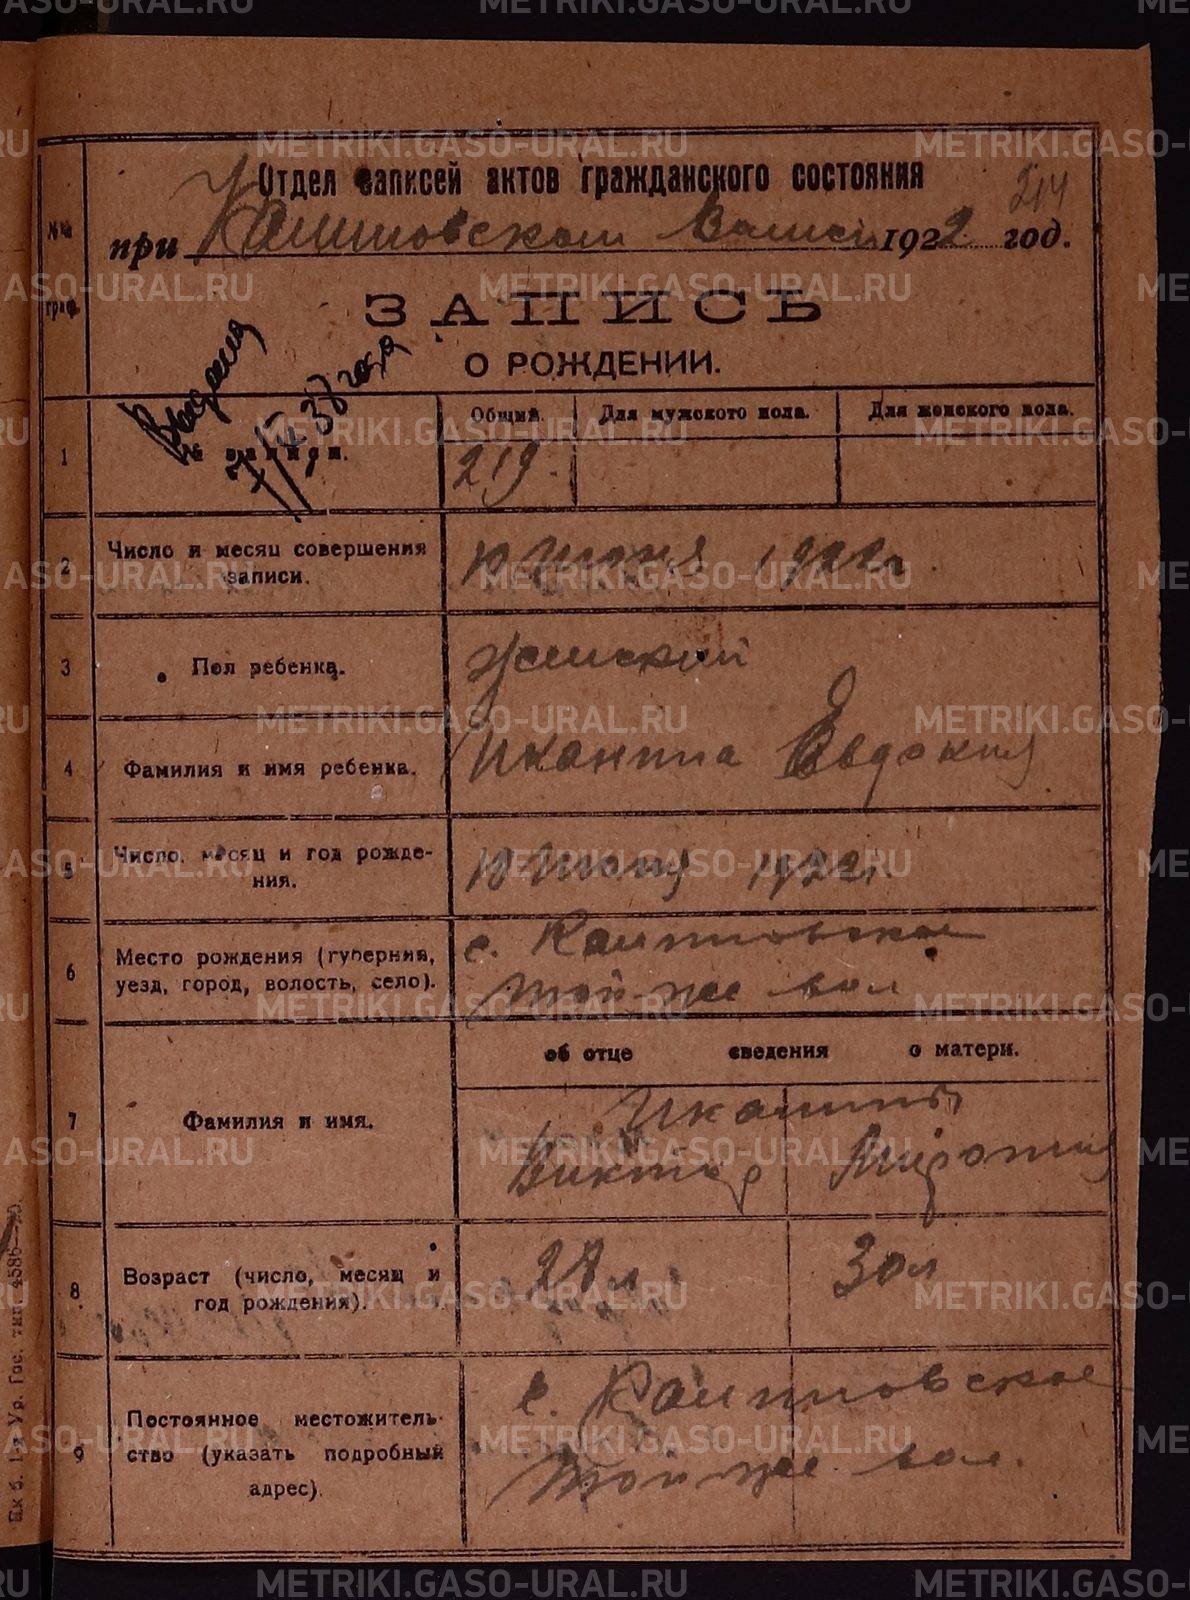 METRIKI.GASO-URAL.RU
Отдел записей актов гражданского состояния
214
№№ граф.
при Волис 1922 год.
ЗАПИСЬ
О РОЖДЕНИИ.
Выдана
7/IX 37 года
Общий. Для мужского пола. Для женского пола.
1 № записи. 219
2 Число и месяц совершения
записи. 10 Июня 1922 г.
3 Пол ребенка. Женский
4 Фамилия и имя ребенка. Иканина Евдокия
5 Число, месяц и год рожде-
ния. 10 Июня 1922 г.
6 Место рождения (губерния,
уезд, город, волость, село).
с.
той-же вол
об отце сведения о матери.
7 Фамилия и имя. Иканины
Виктор
8 Возраст (число, месяц и
год рождения). 28 л. 30 л
9 Постоянное местожитель-
ство (указать подробный
адрес).
с.
той-же вол.
Ек б. 1-я Ур. Гос. тип. 4586—20.